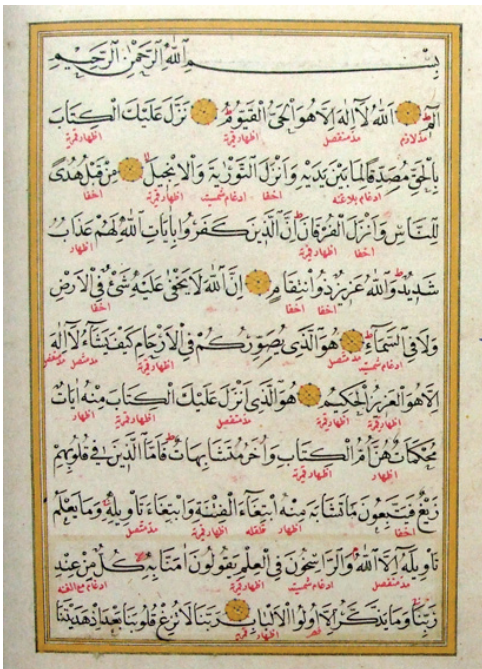 بِسْمِ اللهِ الرَّحْمٰنِ الرَّحِيمِ
الٓمٓ اَللهُ لَٓا اِلٰهَ اِلَّا هُوَ الْحَيُّ الْقَيُّومُ نَزَّلَ عَلَيْكَ الْكِتَابَ
مد لازم مد منفصل اظهار قمرية اظهار قمرية
بِالْحَقِّ مُصَدِّقًا لِمَا بَيْنَ يَدَيْهِ وَاَنْزَلَ التَّوْرٰيةَ وَالْاِنْجِيلَ مِنْ قَبْلُ هُدًى
ادغام بلاغنه اخفا ادغام شمسيه اظهار قمرية اخفا اخفا
لِلنَّاسِ وَاَنْزَلَ الْفُرْقَانَ اِنَّ الَّذِينَ كَفَرُوا بِاٰيَاتِ اللهِ لَهُمْ عَذَابٌ
اخفا اظهار قمرية اظهار
شَدِيدٌ وَاللهُ عَزِيزٌ ذُو انْتِقَامٍ اِنَّ اللهَ لَا يَخْفٰى عَلَيْهِ شَىْءٌ فِي الْاَرْضِ
اخفا اخفا اخفا
وَلَا فِي السَّمَٓاءِ هُوَ الَّذِى يُصَوِّرُكُمْ فِي الْاَرْحَامِ كَيْفَ يَشَٓاءُ لَٓا اِلٰهَ
ادغام شمسيه مد متصل اظهار قمرية مد متصل مد منفصل
اِلَّا هُوَ الْعَزِيزُ الْحَكِيمُ هُوَ الَّذِٓى اَنْزَلَ عَلَيْكَ الْكِتَابَ مِنْهُ اٰيَاتٌ
اظهار قمرية اظهار قمرية مد منفصل اظهار قمرية اظهار
مُحْكَمَاتٌ هُنَّ اُمُّ الْكِتَابِ وَاُخَرُ مُتَشَابِهَاتٌ فَاَمَّا الَّذِينَ فِي قُلُوبِهِمْ
اظهار اظهار قمرية
زَيْغٌ فَيَتَّبِعُونَ مَا تَشَابَهَ مِنْهُ ابْتِغَٓاءَ الْفِتْنَةِ وَابْتِغَٓاءَ تَاْوِيلِهِ وَمَا يَعْلَمُ
اخفا اظهار قلقله اظهار قمرية مد متصل
تَاْوِيلَهُٓ اِلَّا اللهُ وَالرَّاسِخُونَ فِي الْعِلْمِ يَقُولُونَ اٰمَنَّا بِهِ كُلٌّ مِنْ عِنْدِ
مد منفصل ادغام شمسيه اظهار قمرية ادغام مع الغنه
رَبِّنَا وَمَا يَذَّكَّرُ اِلَّٓا اُولُوا الْاَلْبَابِ رَبَّنَا لَا تُزِغْ قُلُوبَنَا بَعْدَ اِذْ هَدَيْتَنَا
قصر اظهار قمرية